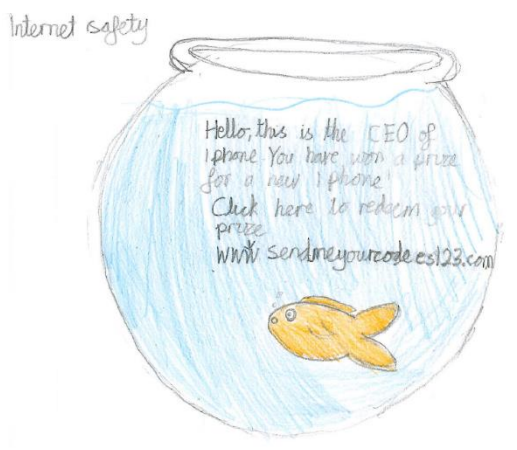 Internet safety
Hello, this is the CEO of
iphone. You have won a prize
for a new iphone!
Click here to redeem your
prize
www sendmeyourcodees123.com